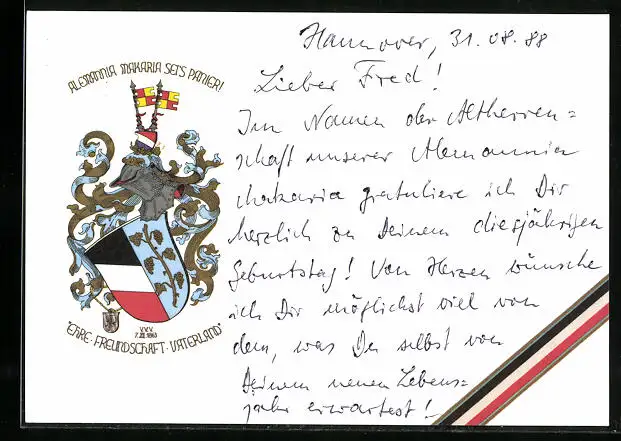 ALEMANNIA MAKARIA SEI'S PANIER!
V.V.V.
7.XII.1863
"EHRE · FREUNDSCHAFT · VATERLAND"
Hannover, 31.08.88
Lieber Fred!
Im Namen der Altherren=
schaft unserer Alemannia
Makaria gratuliere ich Dir
herzlich zu Deinem diesjährigen
Geburtstag! Von Herzen wünsche
ich Dir möglichst viel von
dem, was Du selbst von
Deinem neuen Lebens=
jahr erwartest!